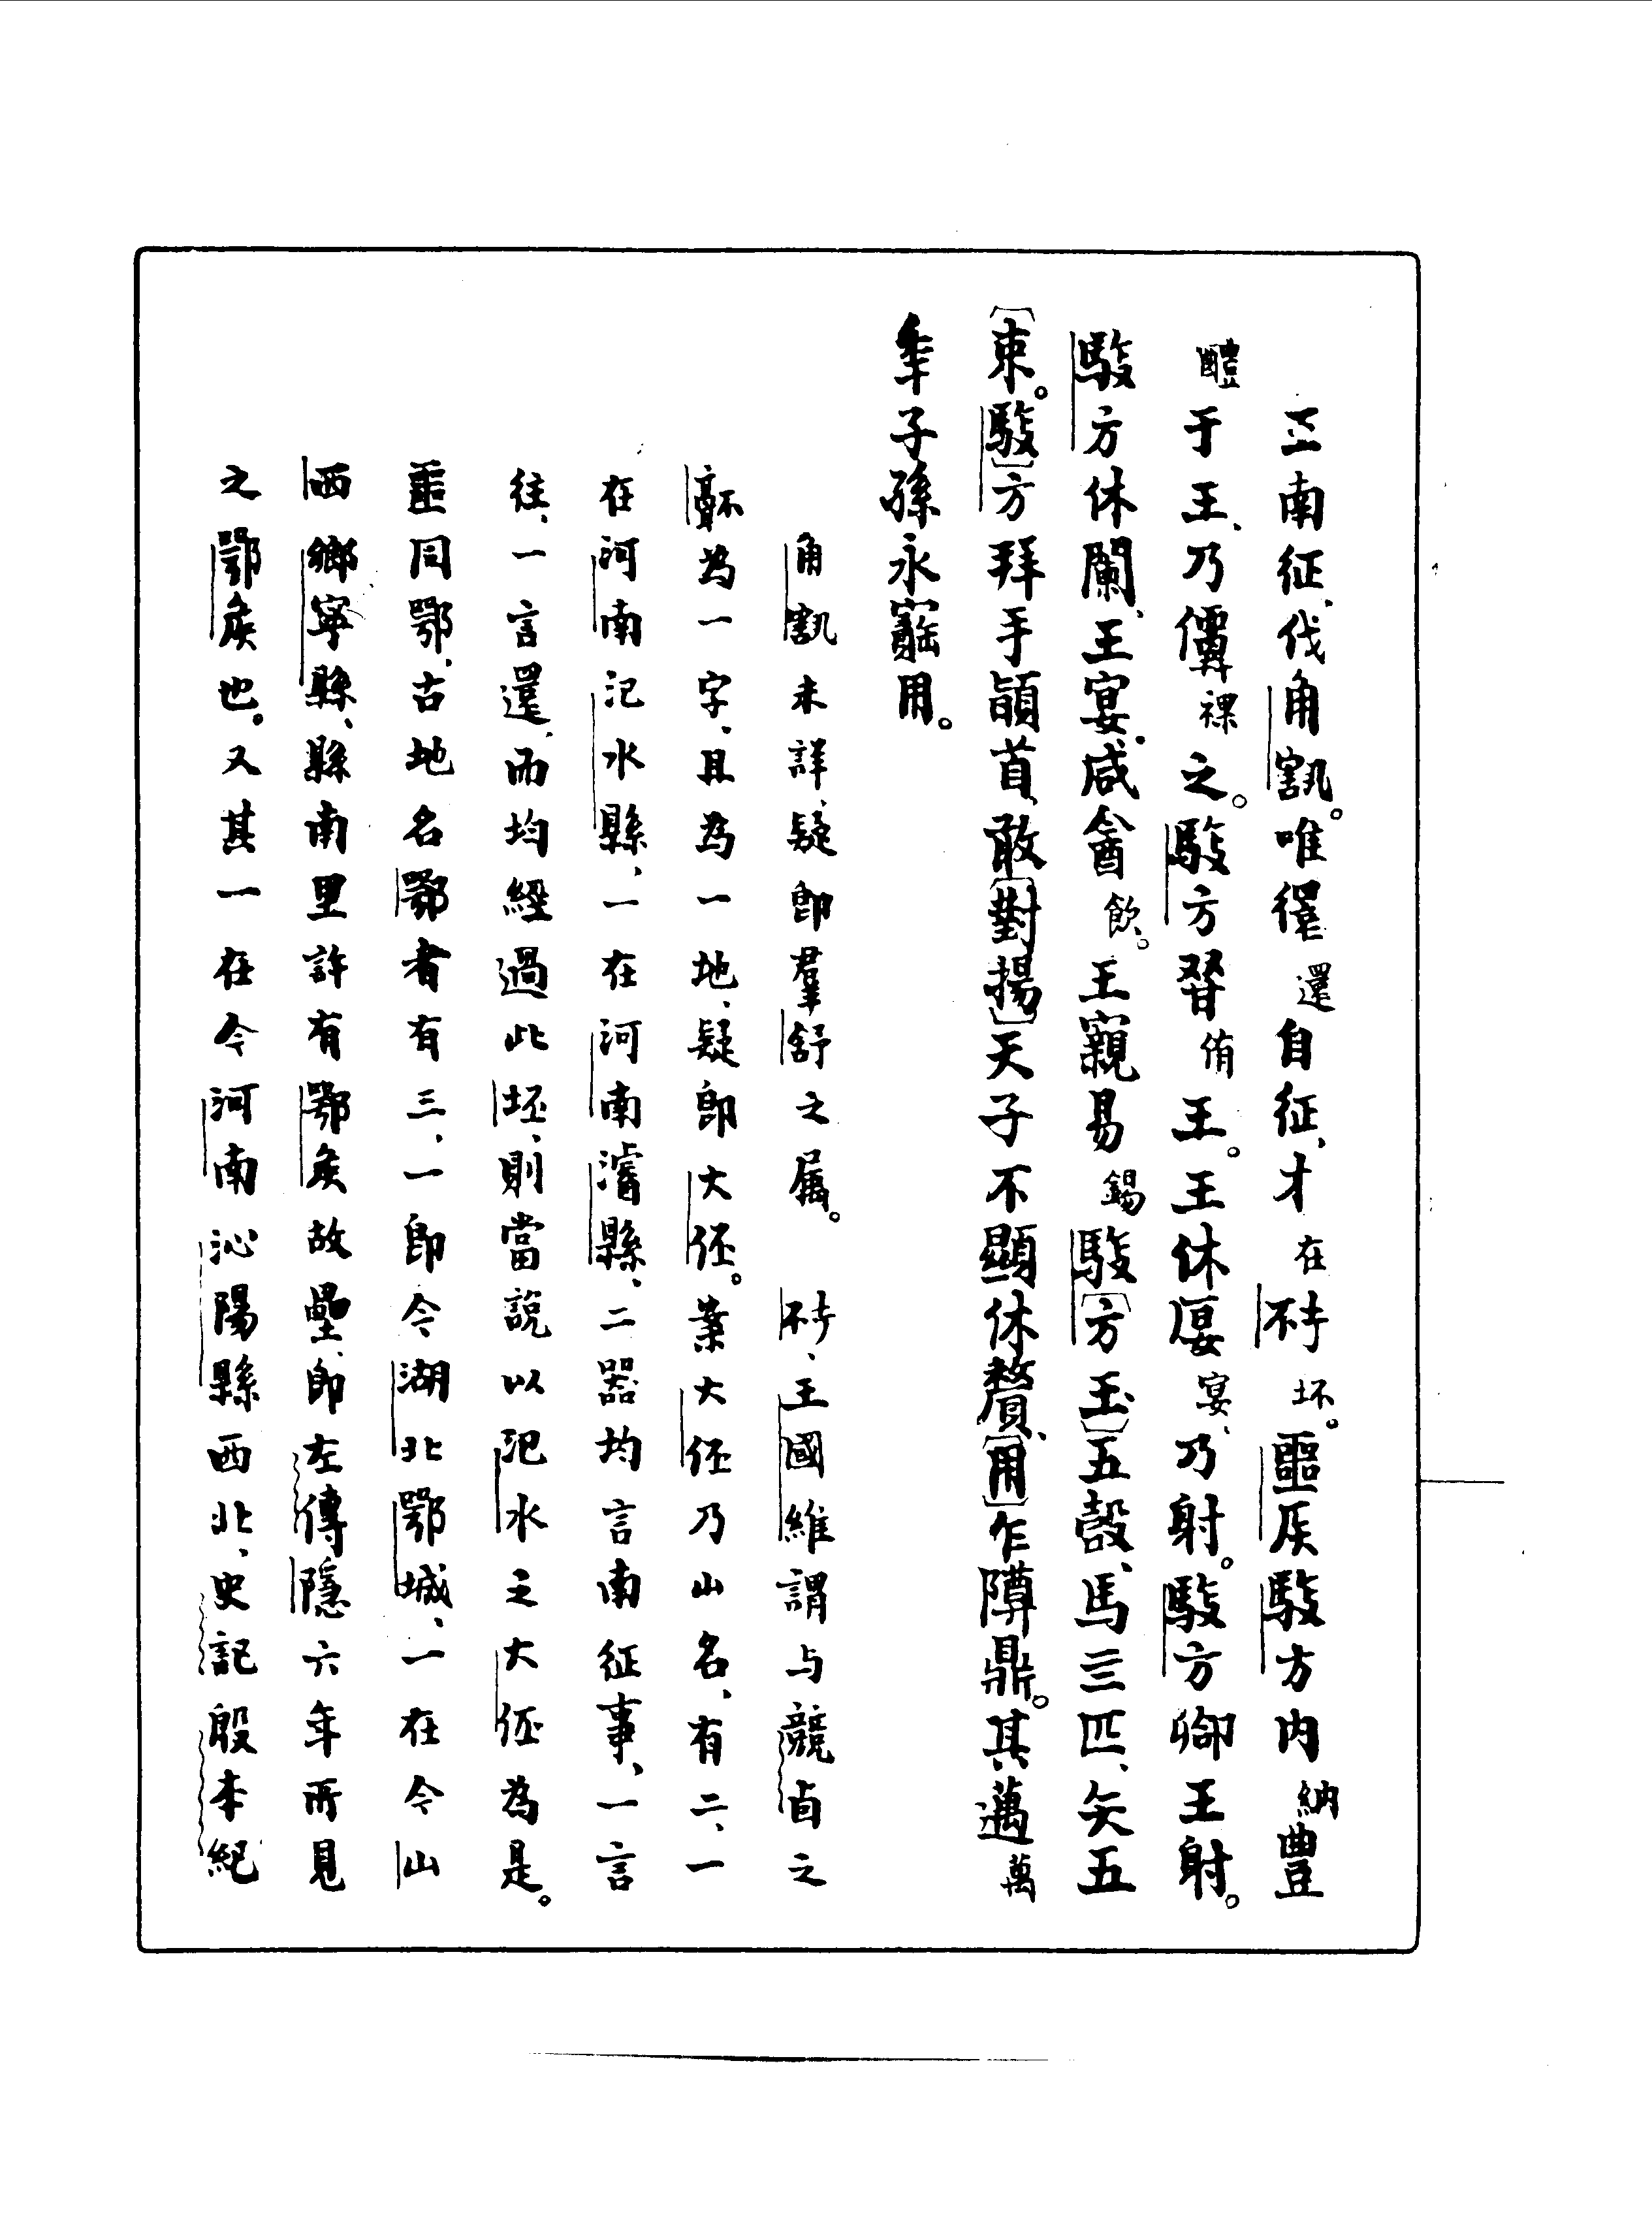 王南征，伐角𩰬。唯還還自征，才在𥐨坏。噩厌駿方内納豊
醴于王，乃祼之。駿方侑王。王休宴，乃射。駿方卿王射。
駿方休闌，王宴，咸酓飲。王寴易錫駿〔方玉〕五瑴，馬三匹、矢五
〔束。駿〕方拜手𩒨首，敢〔對揚〕天子不顯休贅，〔用〕乍䵼鼎。其邁萬
年子孫永寶用。
角未詳，疑即羣舒之属。𥐨，王國維謂与競卣之
為一字，且為一地，疑即大伾。葉大伾乃山名，有二，一
在河南汜水縣，一在河南濬縣，二器均言南征事，一言
往，一言還，而均經過此坯，則當說以汜水之大伾為是。
噩同鄂，古地名鄂者有三，一即今湖北鄂城，一在今山
西鄉寧縣，縣南里許有鄂侯故壘，即左傳隱六年所見
之鄂侯也。又其一在今河南沁陽縣西北，史記殷本紀